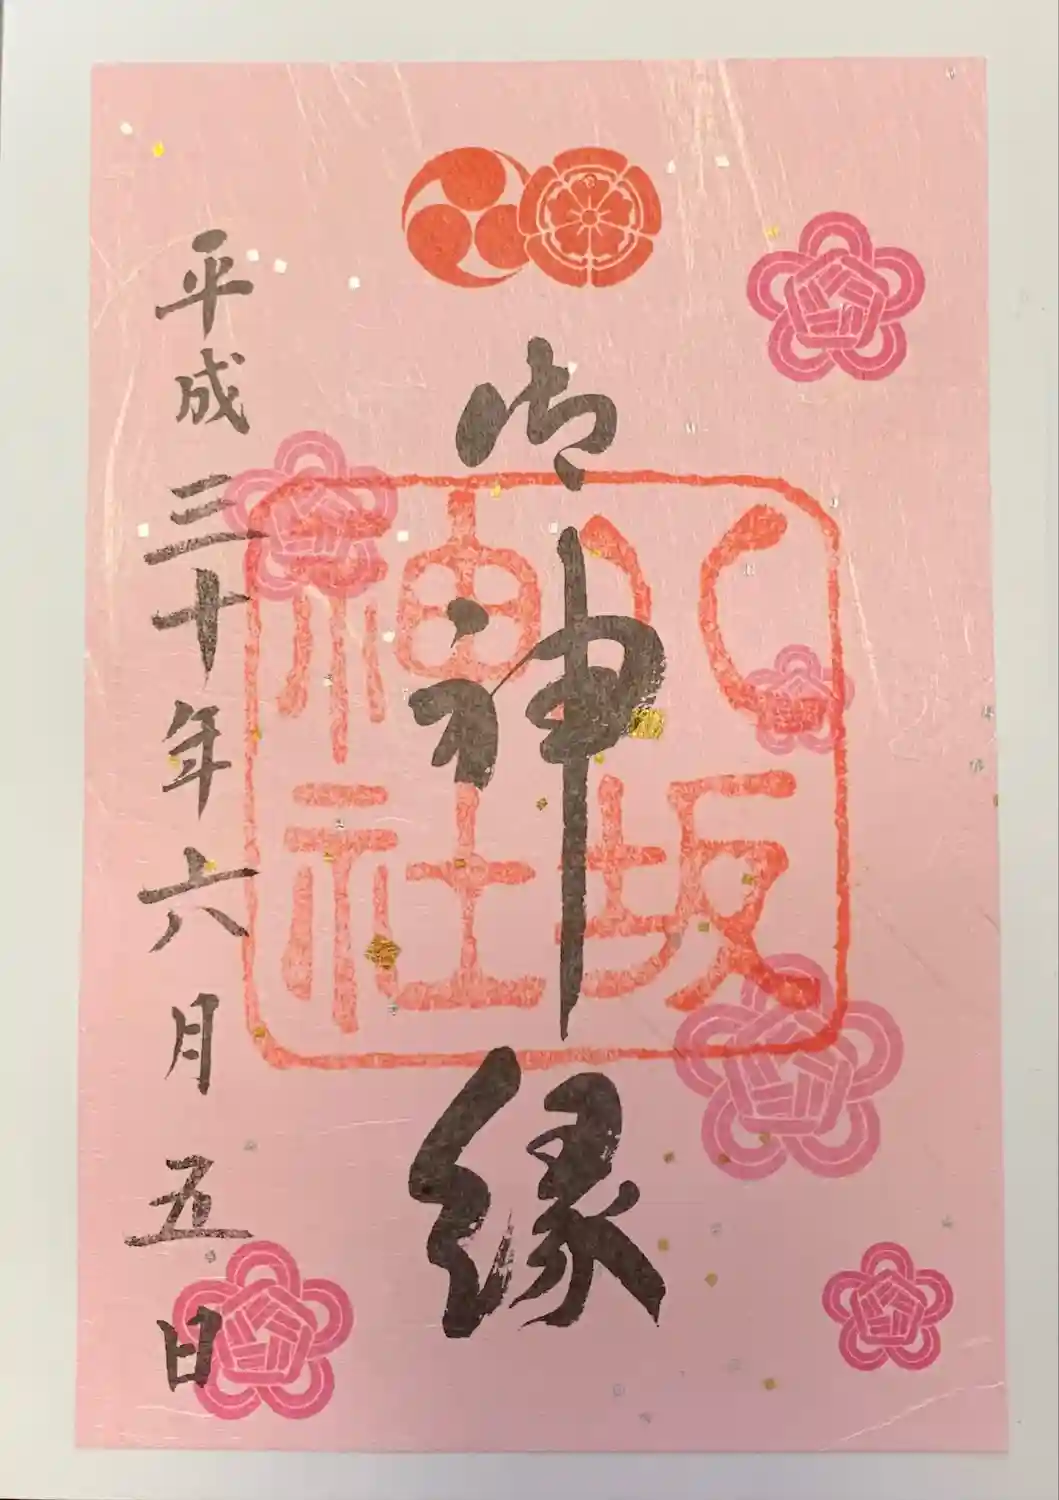 御神縁
八坂神社
平成三十年六月五日